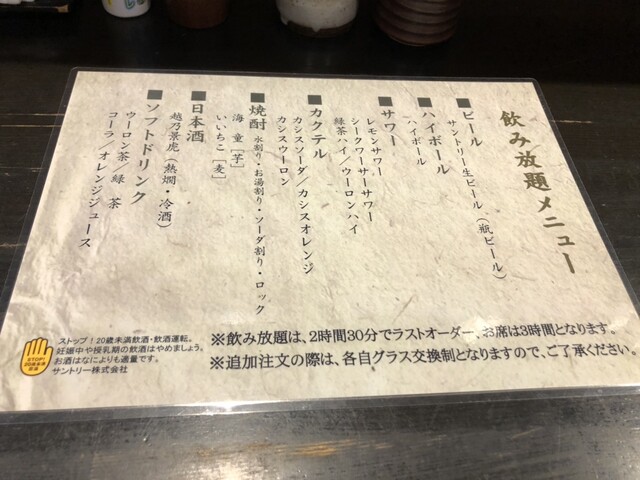 飲み放題メニュー
■ビール
サントリー生ビール(瓶ビール)
■ハイボール
ハイボール
■サワー
レモンサワー
シークワーサーサワー
緑茶ハイ/ウーロンハイ
■カクテル
カシスソーダ/カシスオレンジ
カシスウーロン
■焼酎 水割り・お湯割り・ソーダ割り・ロック
海童[芋]
いいちこ[麦]
■日本酒
越乃景虎(熱燗・冷酒)
■ソフトドリンク
ウーロン茶/緑茶
コーラ/オレンジジュース
※飲み放題は、2時間30分でラストオーダー、お席は3時間となります。
※追加注文の際は、各自グラス交換制となりますので、ご了承ください。
ストップ!20歳未満飲酒・飲酒運転。
妊娠中や授乳期の飲酒はやめましょう。
お酒はなによりも適量です。
サントリー株式会社
STOP!
20歳未満
飲酒